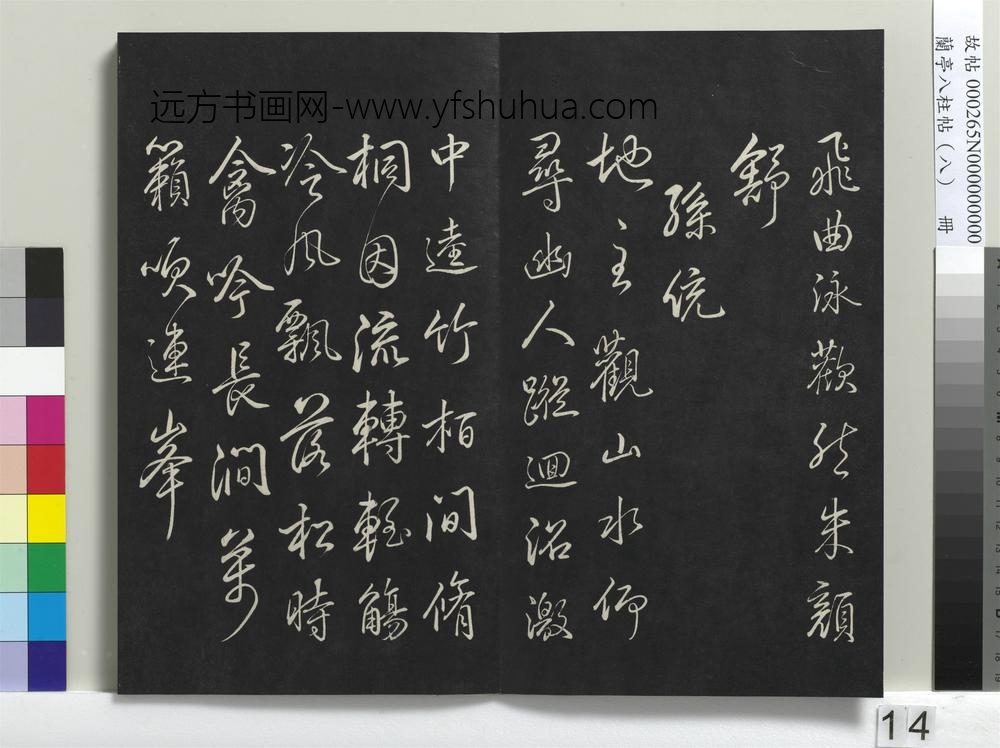 远方书画网-www.yfshuhua.com
飛曲泳歡然朱顏
舒
孫統
地主觀山水仰
尋幽人蹤迴沼激
中逵竹柏間脩
桐因流轉輕觴
冷風飄落松時
禽吟長澗萬
籟吹連峯
故帖 000265N000000000
蘭亭八柱帖(八) 冊
14